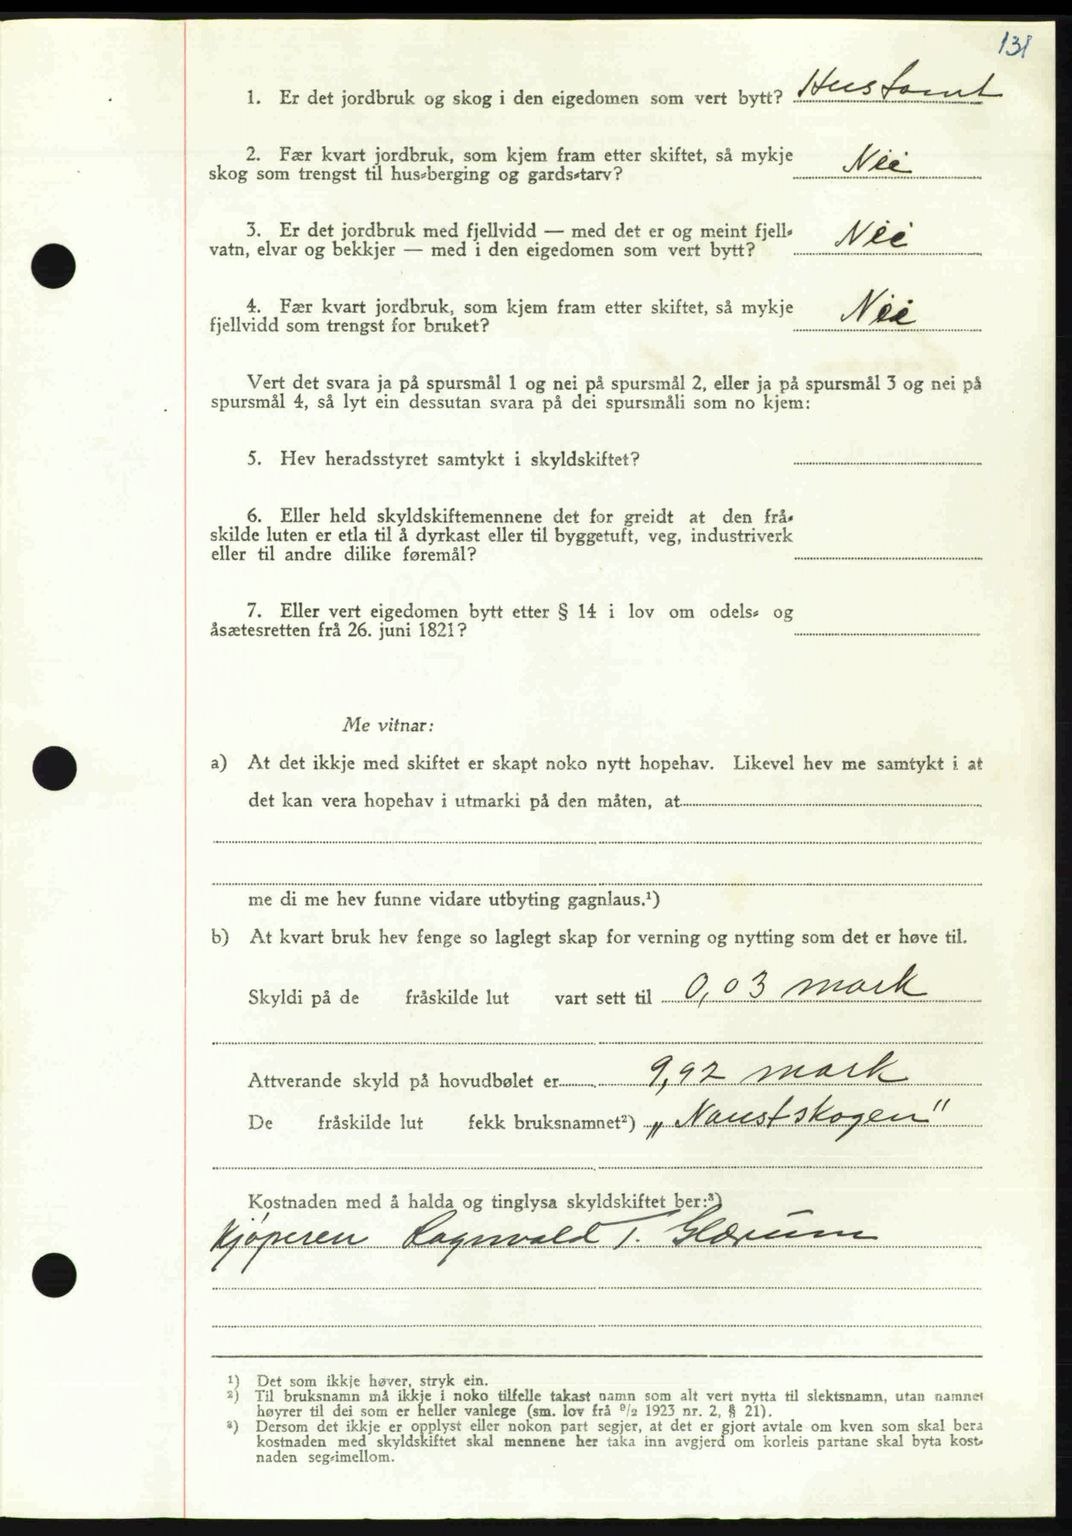 131
1. Er det jordbruk og skog i den eigedomen som vert bytt? Hustomt
2. Fær kvart jordbruk, som kjem fram etter skiftet, så mykje
skog som trengst til hus-berging og gards-tarv? Nei
3. Er det jordbruk med fjellvidd — med det er og meint fjell-
vatn, elvar og bekkjer — med i den eigedomen som vert bytt? Nei
4. Fær kvart jordbruk, som kjem fram etter skiftet, så mykje
fjellvidd som trengst for bruket? Nei
Vert det svara ja på spursmål 1 og nei på spursmål 2, eller ja på spursmål 3 og nei på
spursmål 4, så lyt ein dessutan svara på dei spursmåli som no kjem:
5. Hev heradsstyret samtykt i skyldskiftet?
6. Eller held skyldskiftemennene det for greidt at den frå-
skilde luten er etla til å dyrkast eller til byggetuft, veg, industriverk
eller til andre dilike føremål?
7. Eller vert eigedomen bytt etter § 14 i lov om odels- og
åsætesretten frå 26. juni 1821?
Me vitnar:
a) At det ikkje med skiftet er skapt noko nytt hopehav. Likevel hev me samtykt i at
det kan vera hopehav i utmarki på den måten, at
me di me hev funne vidare utbyting gagnlaus.¹)
b) At kvart bruk hev fenge so laglegt skap for verning og nytting som det er høve til.
Skyldi på de fråskilde lut vart sett til 0,03 mark
Attverande skyld på hovudbølet er 9,92 mark
De fråskilde lut fekk bruksnamnet²) „Naustskogen"
Kostnaden med å halda og tinglysa skyldskiftet ber:³)
Kjøperen Ragnvald T. Glærum
¹) Det som ikkje høver, stryk ein.
²) Til bruksnamn må ikkje i noko tilfelle takast namn som alt vert nytta til slektsnamn, utan namnet
høyrer til dei som er heller vanlege (sm. lov frå ⁹/₂ 1923 nr. 2, § 21).
³) Dersom det ikkje er opplyst eller nokon part segjer, at det er gjort avtale om kven som skal bera
kostnaden med skyldskiftet skal mennene her taka inn avgjerd om korleis partane skal byta kost-
naden seg-imellom.